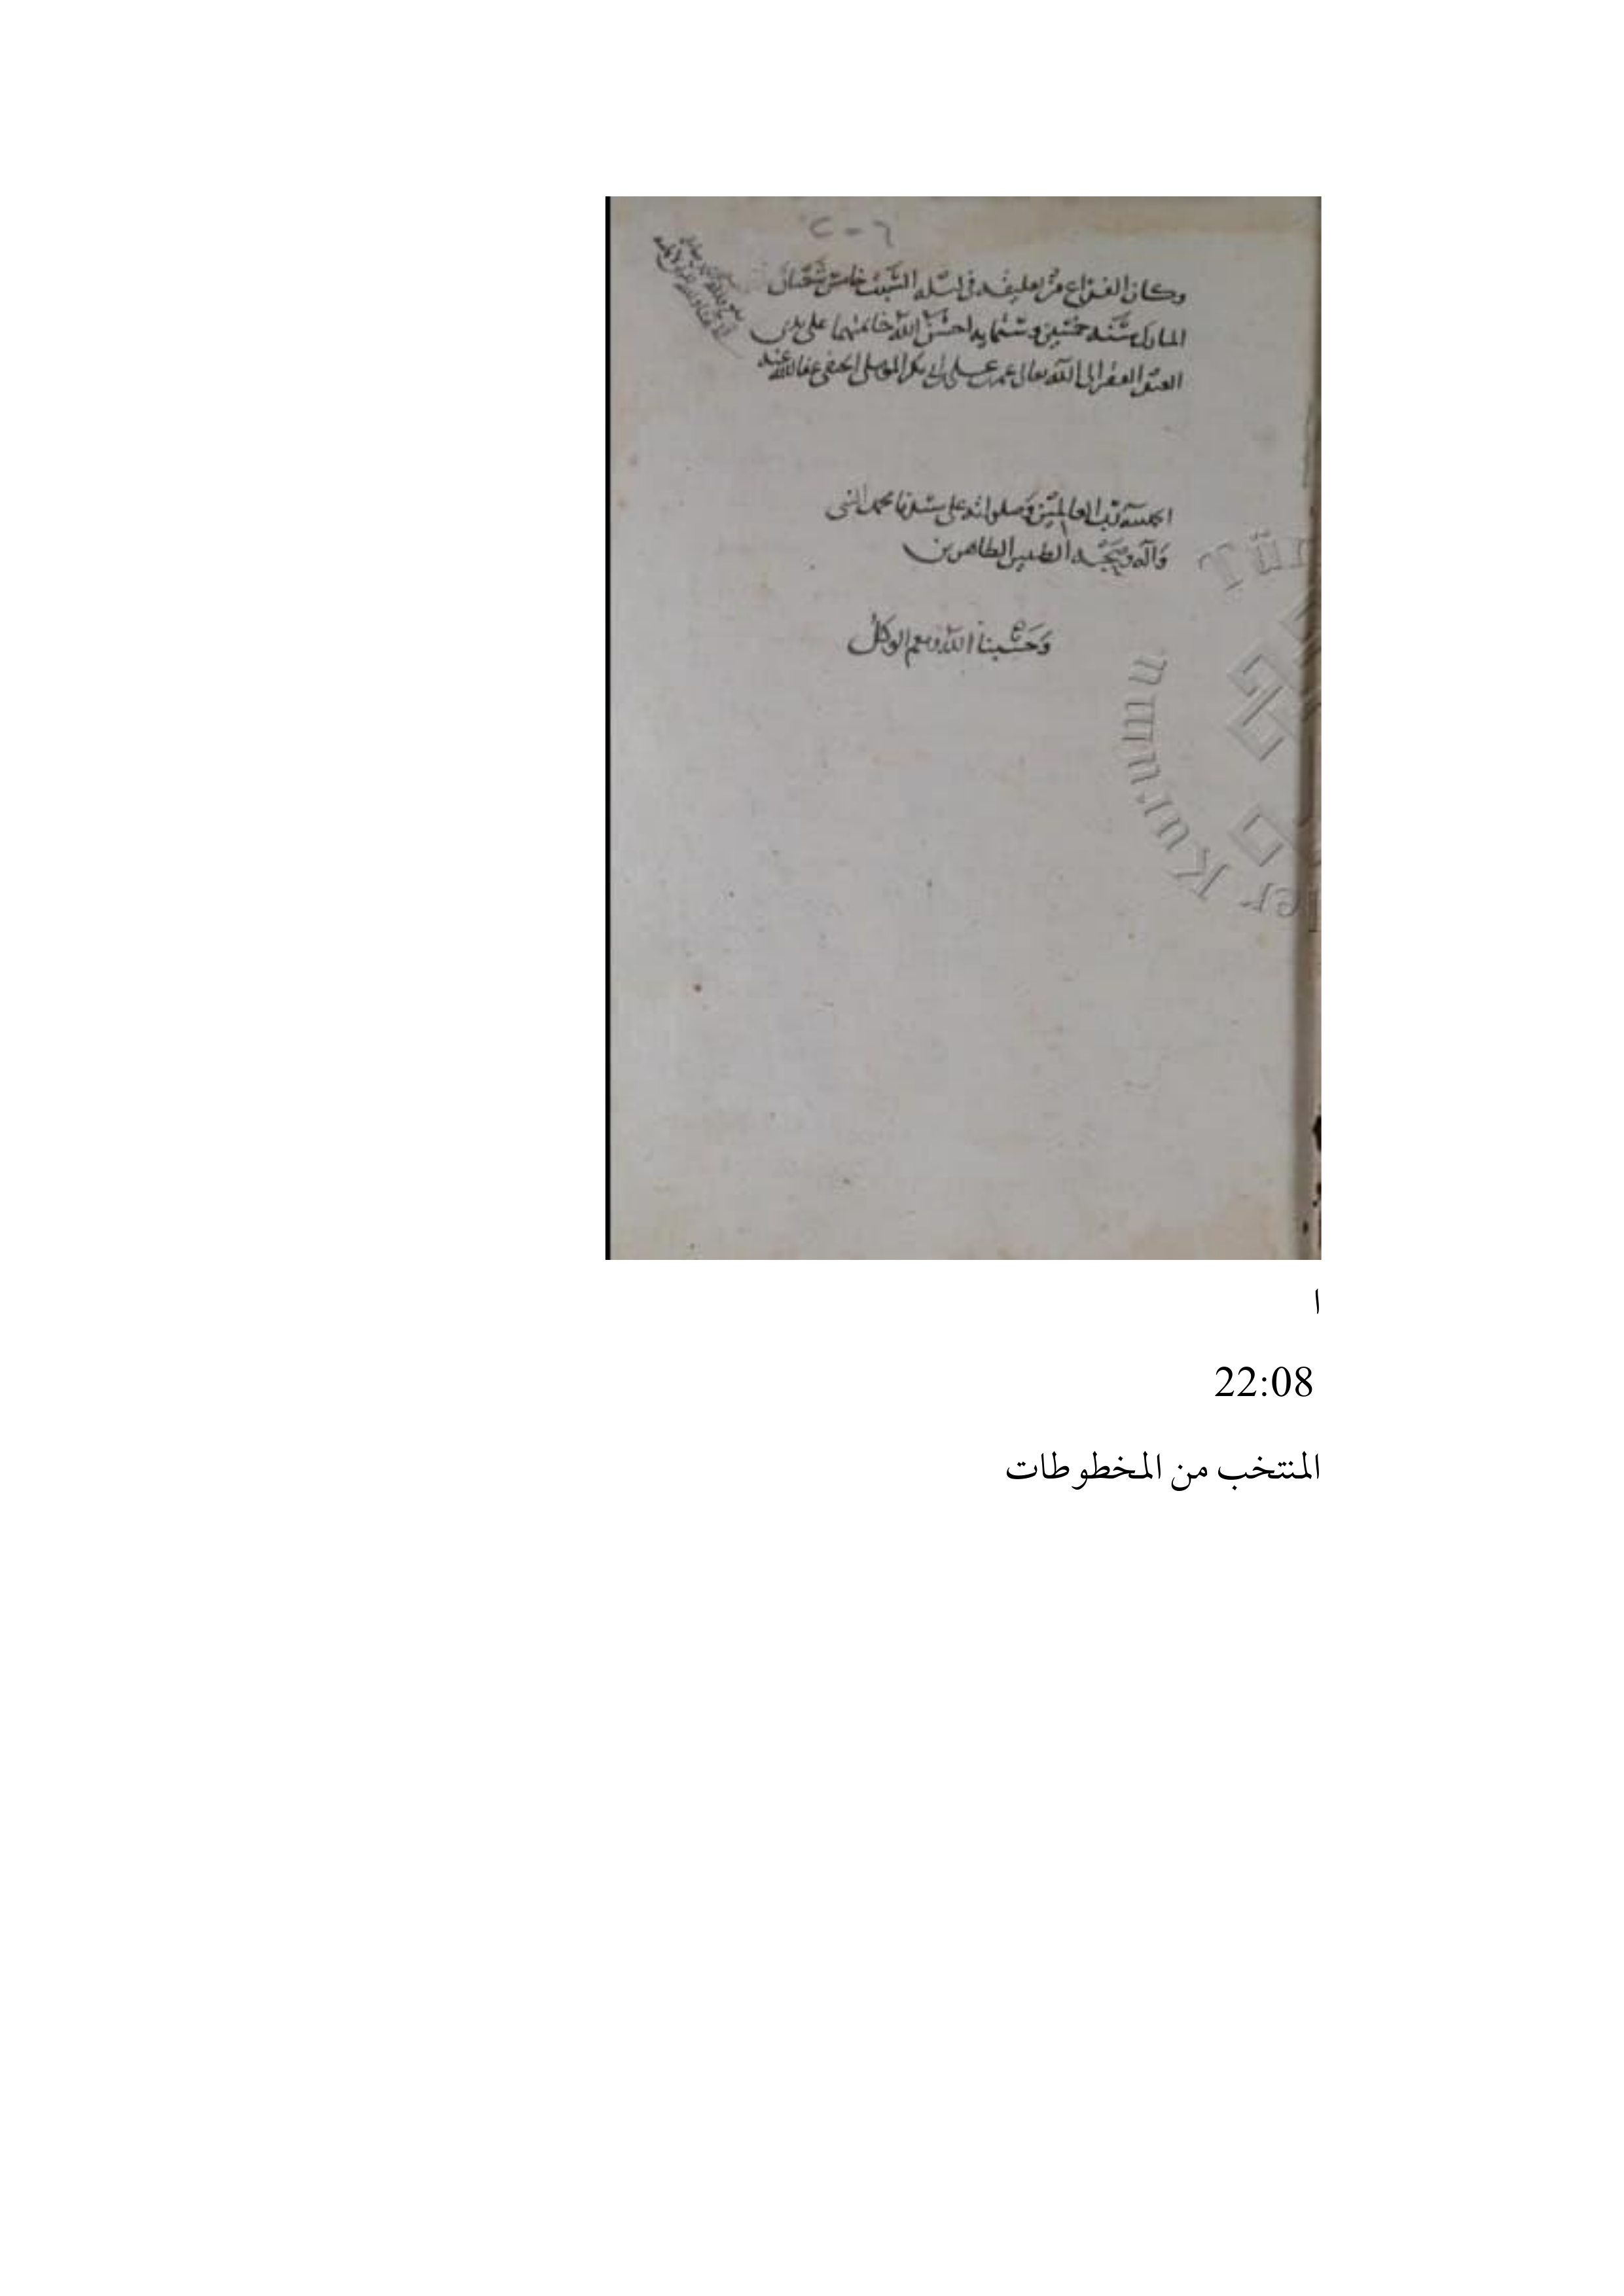 ٢٠٦
وكان الفراغ من تعليقه في ليلة السبت خامس شعبان
المبارك سنة خمسين وستمايه احسن الله خاتمتهما على يدي
العبد الفقير الى الله تعالى عمر بن علي بن ابي بكر الموصلي الحنفي عفا الله عنه
الحمد لله رب العالمين وصلواته على سيدنا محمد النبي
وآله وصحبه الطيبين الطاهرين
وَحَسْبنا الله ونعم الوكيل
ا
22:08
المنتخب من المخطوطات